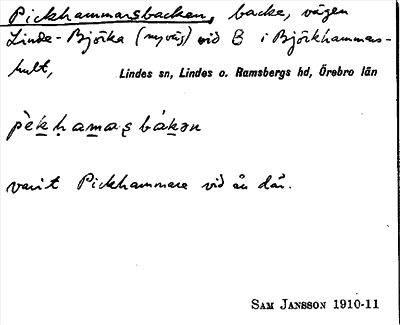 Pickhammarsbacken, backe, vägen
Linde-Björka (nyväg) vid B i Björkhammars-
hult, Lindes sn, Lindes o. Ramsbergs hd, Örebro län
pèḵḥamaʂbáḵən
varit Pickhammare vid ån där.
SAM JANSSON 1910-11